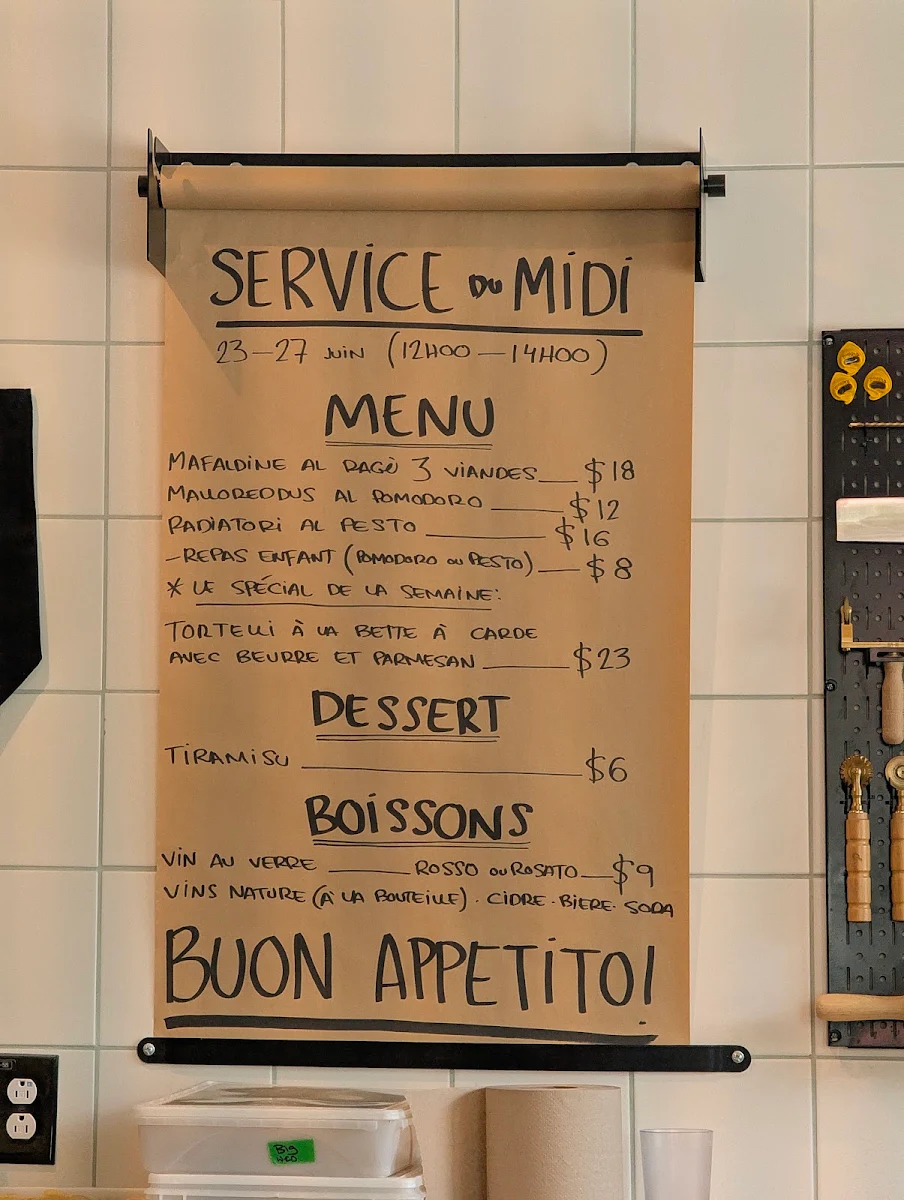 SERVICE DU MIDI
23-27 JUIN (12H00 — 14H00)
MENU
MAFALDINE AL RAGÙ 3 VIANDES $18
MALLOREDDUS AL POMODORO $12
RADIATORI AL PESTO $16
-REPAS ENFANT (POMODORO OU PESTO) $8
* LE SPÉCIAL DE LA SEMAINE:
TORTELLI À LA BETTE À CARDE
AVEC BEURRE ET PARMESAN $23
DESSERT
TIRAMISU $6
BOISSONS
VIN AU VERRE ROSSO OU ROSATO $9
VINS NATURE (À LA BOUTEILLE) · CIDRE · BIERE · SODA
BUON APPETITO!
Big